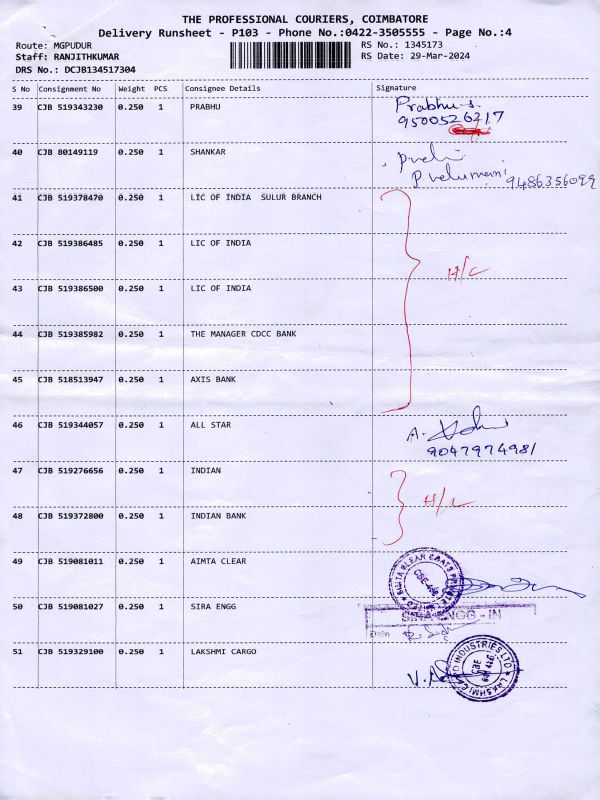 THE PROFESSIONAL COURIERS, COIMBATORE
Delivery Runsheet - P103 - Phone No.:0422-3505555 - Page No.:4
Route: MGPUDUR RS No.: 1345173
Staff: RANJITHKUMAR RS Date: 29-Mar-2024
DRS No.: DCJB134517304
S No Consignment No Weight PCS Consignee Details Signature
39 CJB 519343230 0.250 1 PRABHU Prabhu.s.
9500526217
40 CJB 80149119 0.250 1 SHANKAR
P velumani 9486356099
41 CJB 519378470 0.250 1 LIC OF INDIA SULUR BRANCH
42 CJB 519386485 0.250 1 LIC OF INDIA
H/C
43 CJB 519386500 0.250 1 LIC OF INDIA
44 CJB 519385982 0.250 1 THE MANAGER CDCC BANK
45 CJB 518513947 0.250 1 AXIS BANK
46 CJB 519344057 0.250 1 ALL STAR
9047974981
47 CJB 519276656 0.250 1 INDIAN
H/C
48 CJB 519372800 0.250 1 INDIAN BANK
49 CJB 519081011 0.250 1 AIMTA CLEAR
50 CJB 519081027 0.250 1 SIRA ENGG
51 CJB 519329100 0.250 1 LAKSHMI CARGO